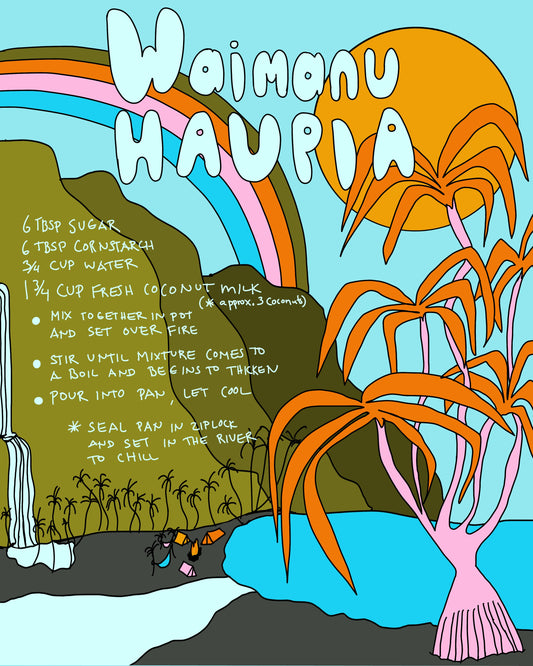 Waimanu
HAUPIA
6 TBSP SUGAR
6 TBSP CORNSTARCH
3/4 CUP WATER
1 3/4 CUP FRESH COCONUT MILK
(* approx. 3 coconuts)
• MIX TOGETHER IN POT
AND SET OVER FIRE
• STIR UNTIL MIXTURE COMES TO
A BOIL AND BEGINS TO THICKEN
• POUR INTO PAN, LET COOL
* SEAL PAN IN ZIPLOCK
AND SET IN THE RIVER
TO CHILL